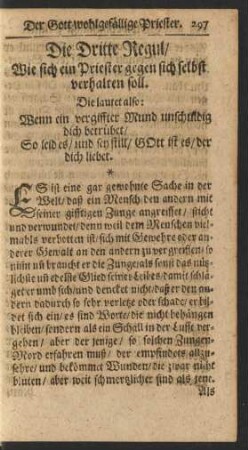 Der Gott-wohlgefällige Priester. 297
Die Dritte Regul/
Wie sich ein Priester gegen sich selbst
verhalten soll.
Die lautet also:
Wenn ein vergiffter Mund unschuldig
dich betrübet/
So leid es/ und sey still/ GOtt ist es/ der
dich liebet.
*
ES ist eine gar gewohnte Sache in der
Welt/ daß ein Mensch den andern mit
seiner gifftigen Zunge angreiffet/ sticht
und verwundet/ denn weil dem Menschen viel-
mahls verbotten ist/ sich mit Gewehre oder an-
derer Gewalt an den andern zu vergreiffen/ so
nimt uñ braucht er die Zunge/ als sonst das nüz-
lichste uñ edelste Glied seines Leibes/ damit schlä-
get er umb sich/ und dencket nicht/ daß er den an-
dern dadurch so sehr verletze oder schade/ er bil-
det sich ein/ es sind Worte/ die nicht behängen
bleiben/ sondern als ein Schall in der Lufft ver-
gehen/ aber der jenige/ so solchen Zungen-
Mord erfahren muß/ der empfindets allzu-
sehre/ und bekömmet Wunden/ die zwar nicht
bluten/ aber weit schmertzlicher sind als jene.
Als